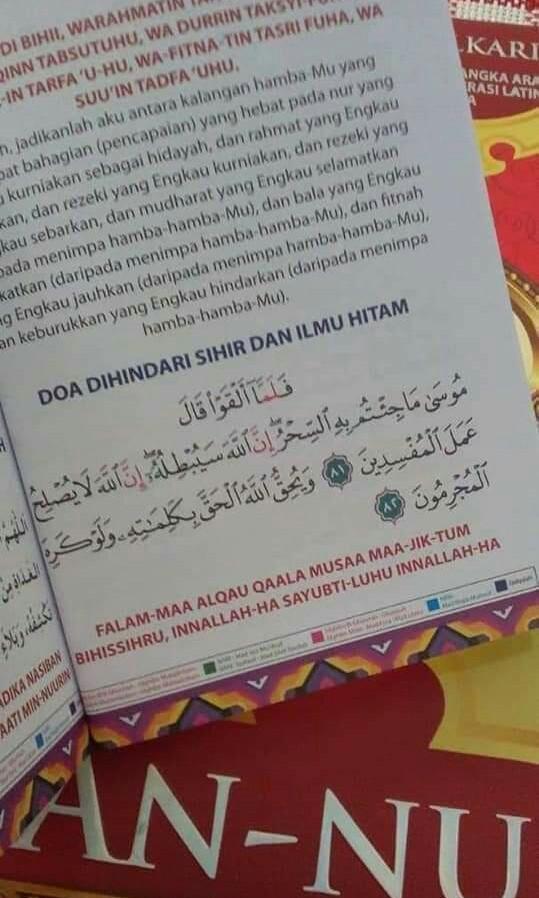 DI BIHII, WARAHMATIN
QINN TABSUTUHU, WA DURRIN
-IN TARFA 'U-HU, WA-FITNA-TIN TASRI FUHA, WA
SUU'IN TADFA 'UHU.
jadikanlah aku antara kalangan hamba-Mu yang
bahagian (pencapaian) yang hebat pada nur yang
kurniakan sebagai hidayah, dan rahmat yang Engkau
kan, dan rezeki yang Engkau kurniakan, dan rezeki yang
kau sebarkan, dan mudharat yang Engkau selamatkan
pada menimpa hamba-hamba-Mu), dan bala yang Engkau
katkan (daripada menimpa hamba-hamba-Mu), dan fitnah
g Engkau jauhkan (daripada menimpa hamba-hamba-Mu),
an keburukkan yang Engkau hindarkan (daripada menimpa
hamba-hamba-Mu).
DOA DIHINDARI SIHIR DAN ILMU HITAM
فَلَمَّآ أَلْقَوْا۟ قَالَ
مُوسَىٰ مَا جِئْتُم بِهِ ٱلسِّحْرُ ۖ إِنَّ ٱللَّهَ سَيُبْطِلُهُۥٓ ۖ إِنَّ ٱللَّهَ لَا يُصْلِحُ
عَمَلَ ٱلْمُفْسِدِينَ ٨١ وَيُحِقُّ ٱللَّهُ ٱلْحَقَّ بِكَلِمَـٰتِهِۦ وَلَوْ كَرِهَ
ٱلْمُجْرِمُونَ ٨٢
FALAM-MAA ALQAU QAALA MUSAA MAA-JIK-TUM
BIHISSIHRU, INNALLAH-HA SAYUBTI-LUHU INNALLAH-HA
DIKA NASIBAN
AATI MIN-NUURIN
KARI
ANGKA ARA
RASI LATIN
A
AN-NU